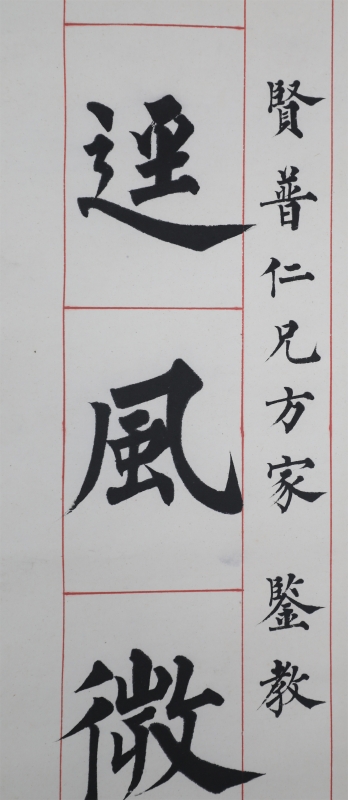 賢普仁兄方家 鑒教
逕風微